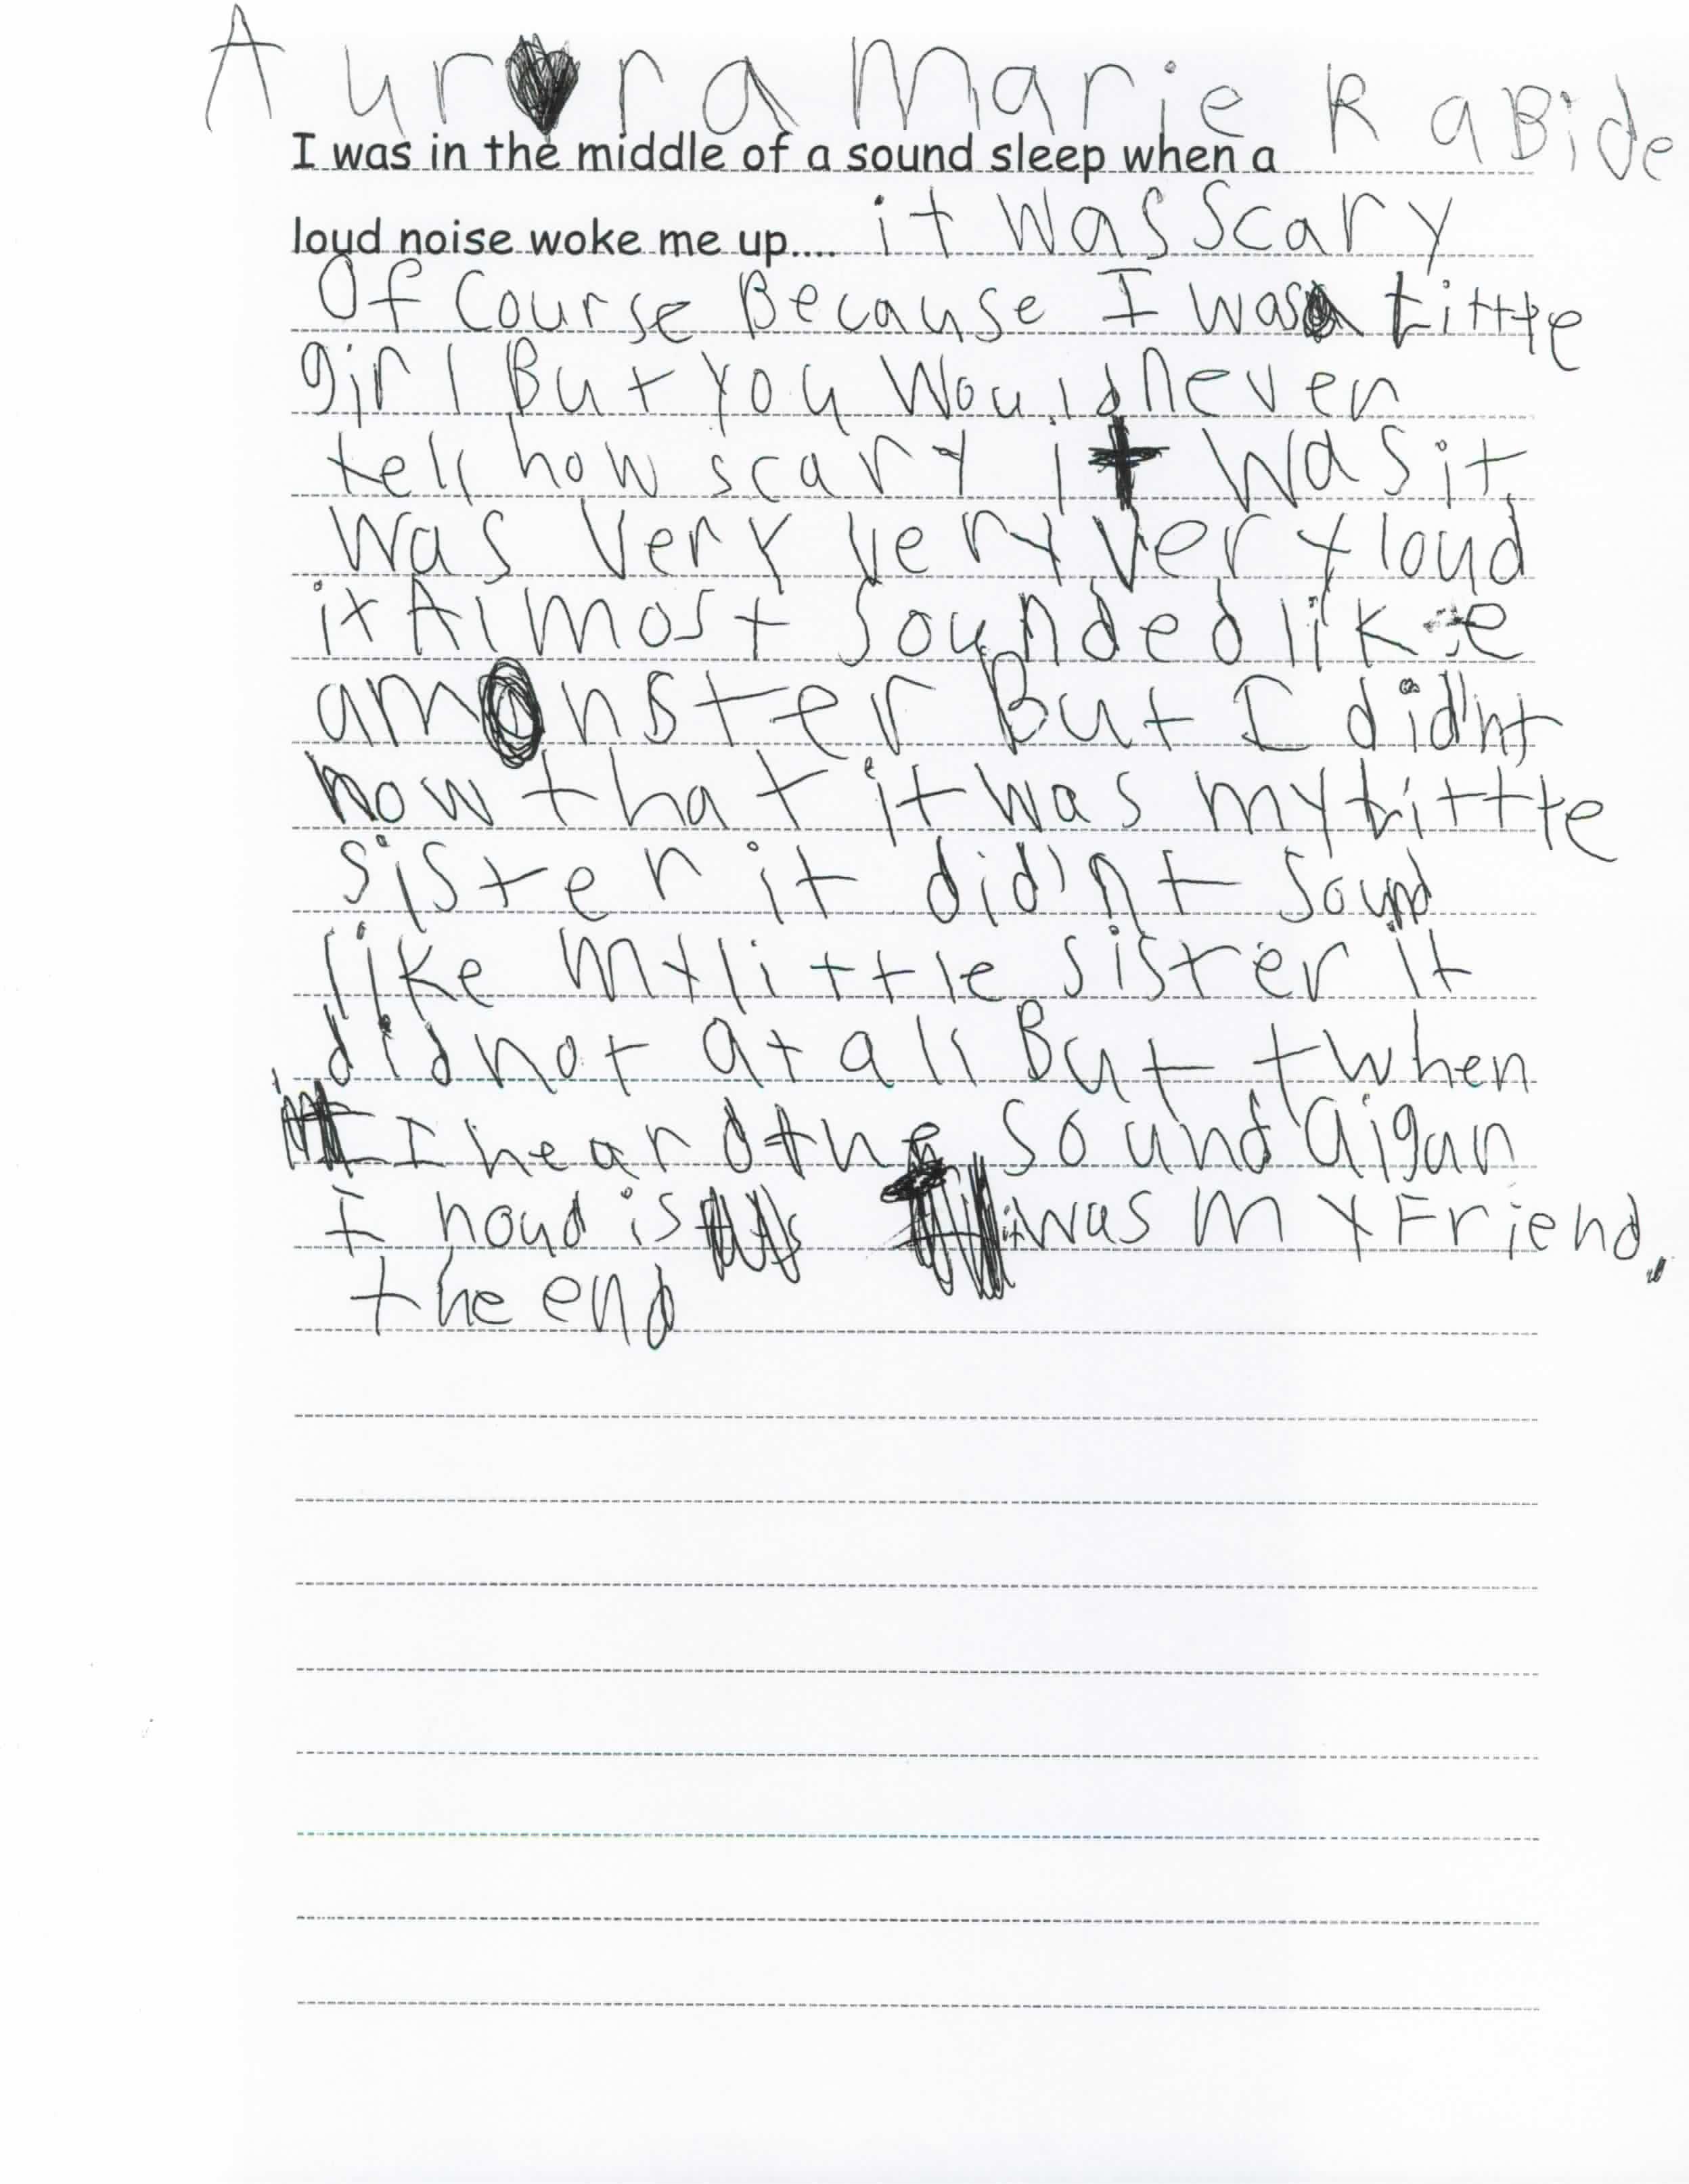 Aurora Marie RaBide
I was in the middle of a sound sleep when a
loud noise woke me up.... it was scary
Of Course Because I was a tittte
girl But you Would never
tell how scary it was it
was very very very loud
it Almost sounded like
a monster But I did'nt
now that it was my tittte
sister it did'nt sound
like my little sister it
did not at all But t when
I heard the sound aigan
I noud is it was my Friend.
the end